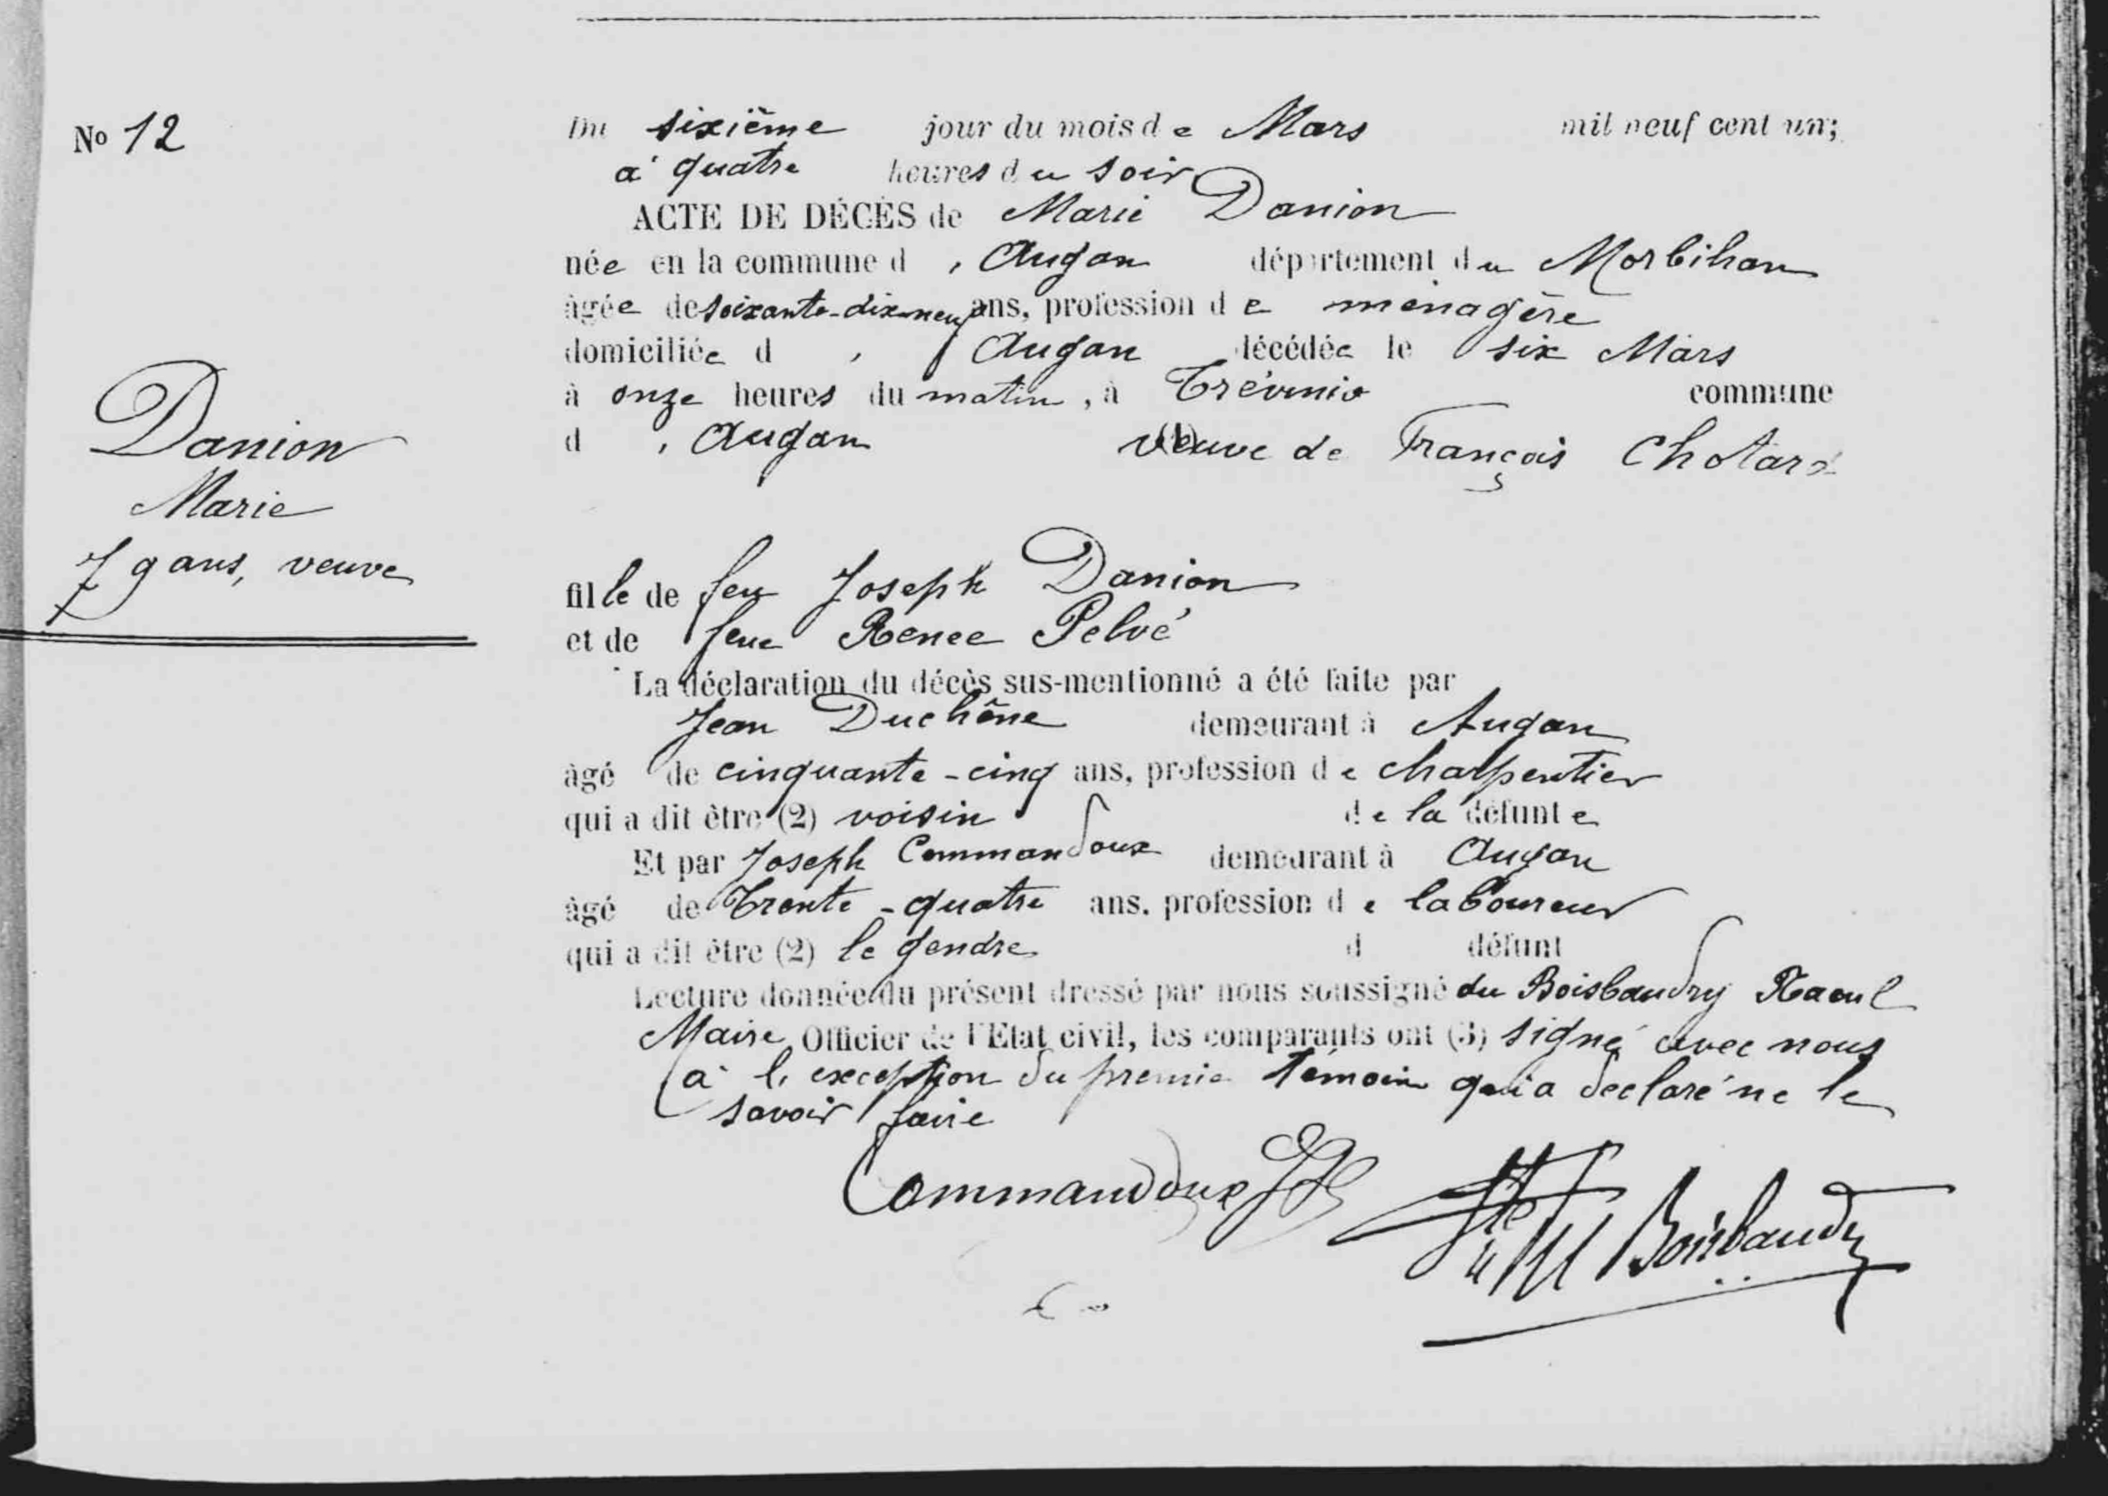 No 12
Danion
Marie
79 ans, veuve
Du sixième jour du mois de Mars mil neuf cent un;
à quatre heures du soir
ACTE DE DÉCÈS de Marie Danion
née en la commune d'Augan département du Morbihan
âgée de soixante-dix-neuf ans, profession de ménagère
domiciliée d'Augan décédée le six Mars
à onze heures du matin, à Trévinio commune
d'Augan (1) veuve de François Chotard
fille de feu Joseph Danion
et de feue Renee Pelvé
La déclaration du décès sus-mentionné a été faite par
Jean Duchêne demeurant à Augan
âgé de cinquante-cinq ans, profession de charpentier
qui a dit être (2) voisin de la défunte
Et par Joseph Commandoux demeurant à Augan
âgé de Trente-quatre ans, profession de laboureur
qui a dit être (2) le gendre d défunt
Lecture donnée du présent dressé par nous soussigné du Boisbaudry Raoul
Maire Officier de l'Etat civil, les comparants ont (3) signé avec nous
à l'exception du premier témoin qui a déclaré ne le
savoir faire
Commandoux Boisbaudry